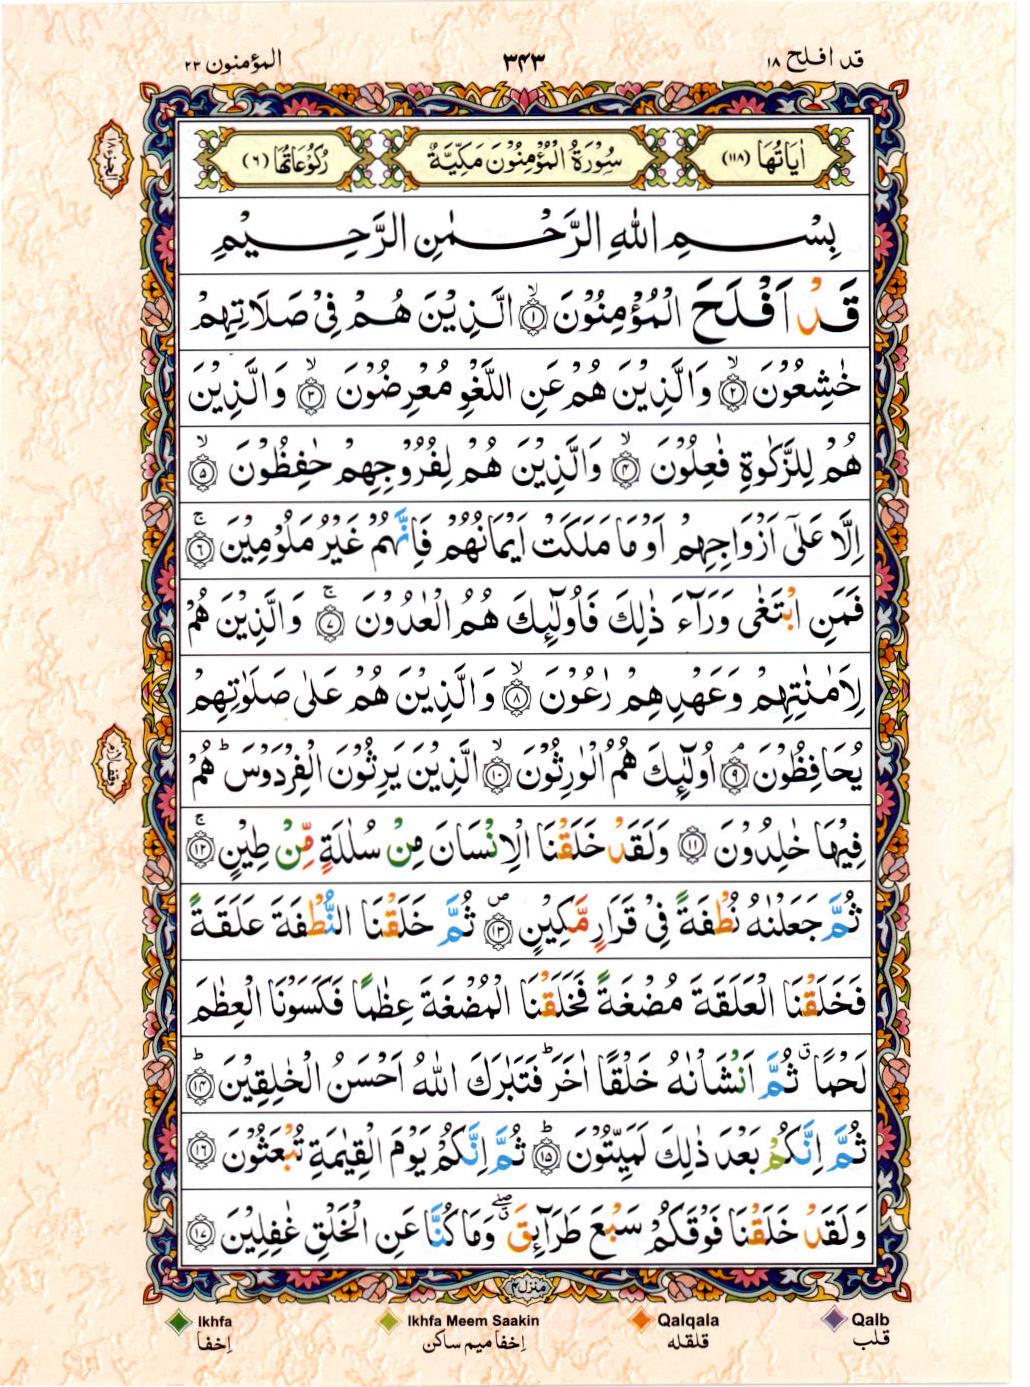 قد افلح ۱۸
۳۴۳
المؤمنون ۲۳
اٰیَاتُهَا (۱۱۸)
سُوْرَةُ الْمُؤْمِنُوْنَ مَكِّیَّةٌ
رُكُوْعَاتُهَا (۶)
الجزء ۱۸
بِسْمِ اللهِ الرَّحْمٰنِ الرَّحِیْمِ
قَدْ اَفْلَحَ الْمُؤْمِنُوْنَ ۙ﴿۱﴾ الَّذِیْنَ هُمْ فِیْ صَلَاتِهِمْ
خٰشِعُوْنَ ۙ﴿۲﴾ وَالَّذِیْنَ هُمْ عَنِ اللَّغْوِ مُعْرِضُوْنَ ۙ﴿۳﴾ وَالَّذِیْنَ
هُمْ لِلزَّكٰوةِ فٰعِلُوْنَ ۙ﴿۴﴾ وَالَّذِیْنَ هُمْ لِفُرُوْجِهِمْ حٰفِظُوْنَ ۙ﴿۵﴾
اِلَّا عَلٰۤی اَزْوَاجِهِمْ اَوْ مَا مَلَكَتْ اَیْمَانُهُمْ فَاِنَّهُمْ غَیْرُ مَلُوْمِیْنَ ۚ﴿۶﴾
فَمَنِ ابْتَغٰی وَرَآءَ ذٰلِكَ فَاُولٰٓئِكَ هُمُ الْعٰدُوْنَ ۚ﴿۷﴾ وَالَّذِیْنَ هُمْ
لِاَمٰنٰتِهِمْ وَعَهْدِهِمْ رٰعُوْنَ ۙ﴿۸﴾ وَالَّذِیْنَ هُمْ عَلٰی صَلَوٰتِهِمْ
یُحَافِظُوْنَ ۘ﴿۹﴾ اُولٰٓئِكَ هُمُ الْوٰرِثُوْنَ ۙ﴿۱۰﴾ الَّذِیْنَ یَرِثُوْنَ الْفِرْدَوْسَ ؕ هُمْ
فِیْهَا خٰلِدُوْنَ ﴿۱۱﴾ وَلَقَدْ خَلَقْنَا الْاِنْسَانَ مِنْ سُلٰلَةٍ مِّنْ طِیْنٍ ۚ﴿۱۲﴾
ثُمَّ جَعَلْنٰهُ نُطْفَةً فِیْ قَرَارٍ مَّكِیْنٍ ۪﴿۱۳﴾ ثُمَّ خَلَقْنَا النُّطْفَةَ عَلَقَةً
فَخَلَقْنَا الْعَلَقَةَ مُضْغَةً فَخَلَقْنَا الْمُضْغَةَ عِظٰمًا فَكَسَوْنَا الْعِظٰمَ
لَحْمًا ۗ ثُمَّ اَنْشَاْنٰهُ خَلْقًا اٰخَرَ ؕ فَتَبٰرَكَ اللهُ اَحْسَنُ الْخٰلِقِیْنَ ؕ﴿۱۴﴾
ثُمَّ اِنَّكُمْ بَعْدَ ذٰلِكَ لَمَیِّتُوْنَ ؕ﴿۱۵﴾ ثُمَّ اِنَّكُمْ یَوْمَ الْقِیٰمَةِ تُبْعَثُوْنَ ﴿۱۶﴾
وَلَقَدْ خَلَقْنَا فَوْقَكُمْ سَبْعَ طَرَآئِقَ ۖۗ وَمَا كُنَّا عَنِ الْخَلْقِ غٰفِلِیْنَ ﴿۱۷﴾
منزل ۴
Qalb
Qalqala
Ikhfa Meem Saakin
Ikhfa
قلب
قلقله
اِخفا میم ساکن
اِخفا